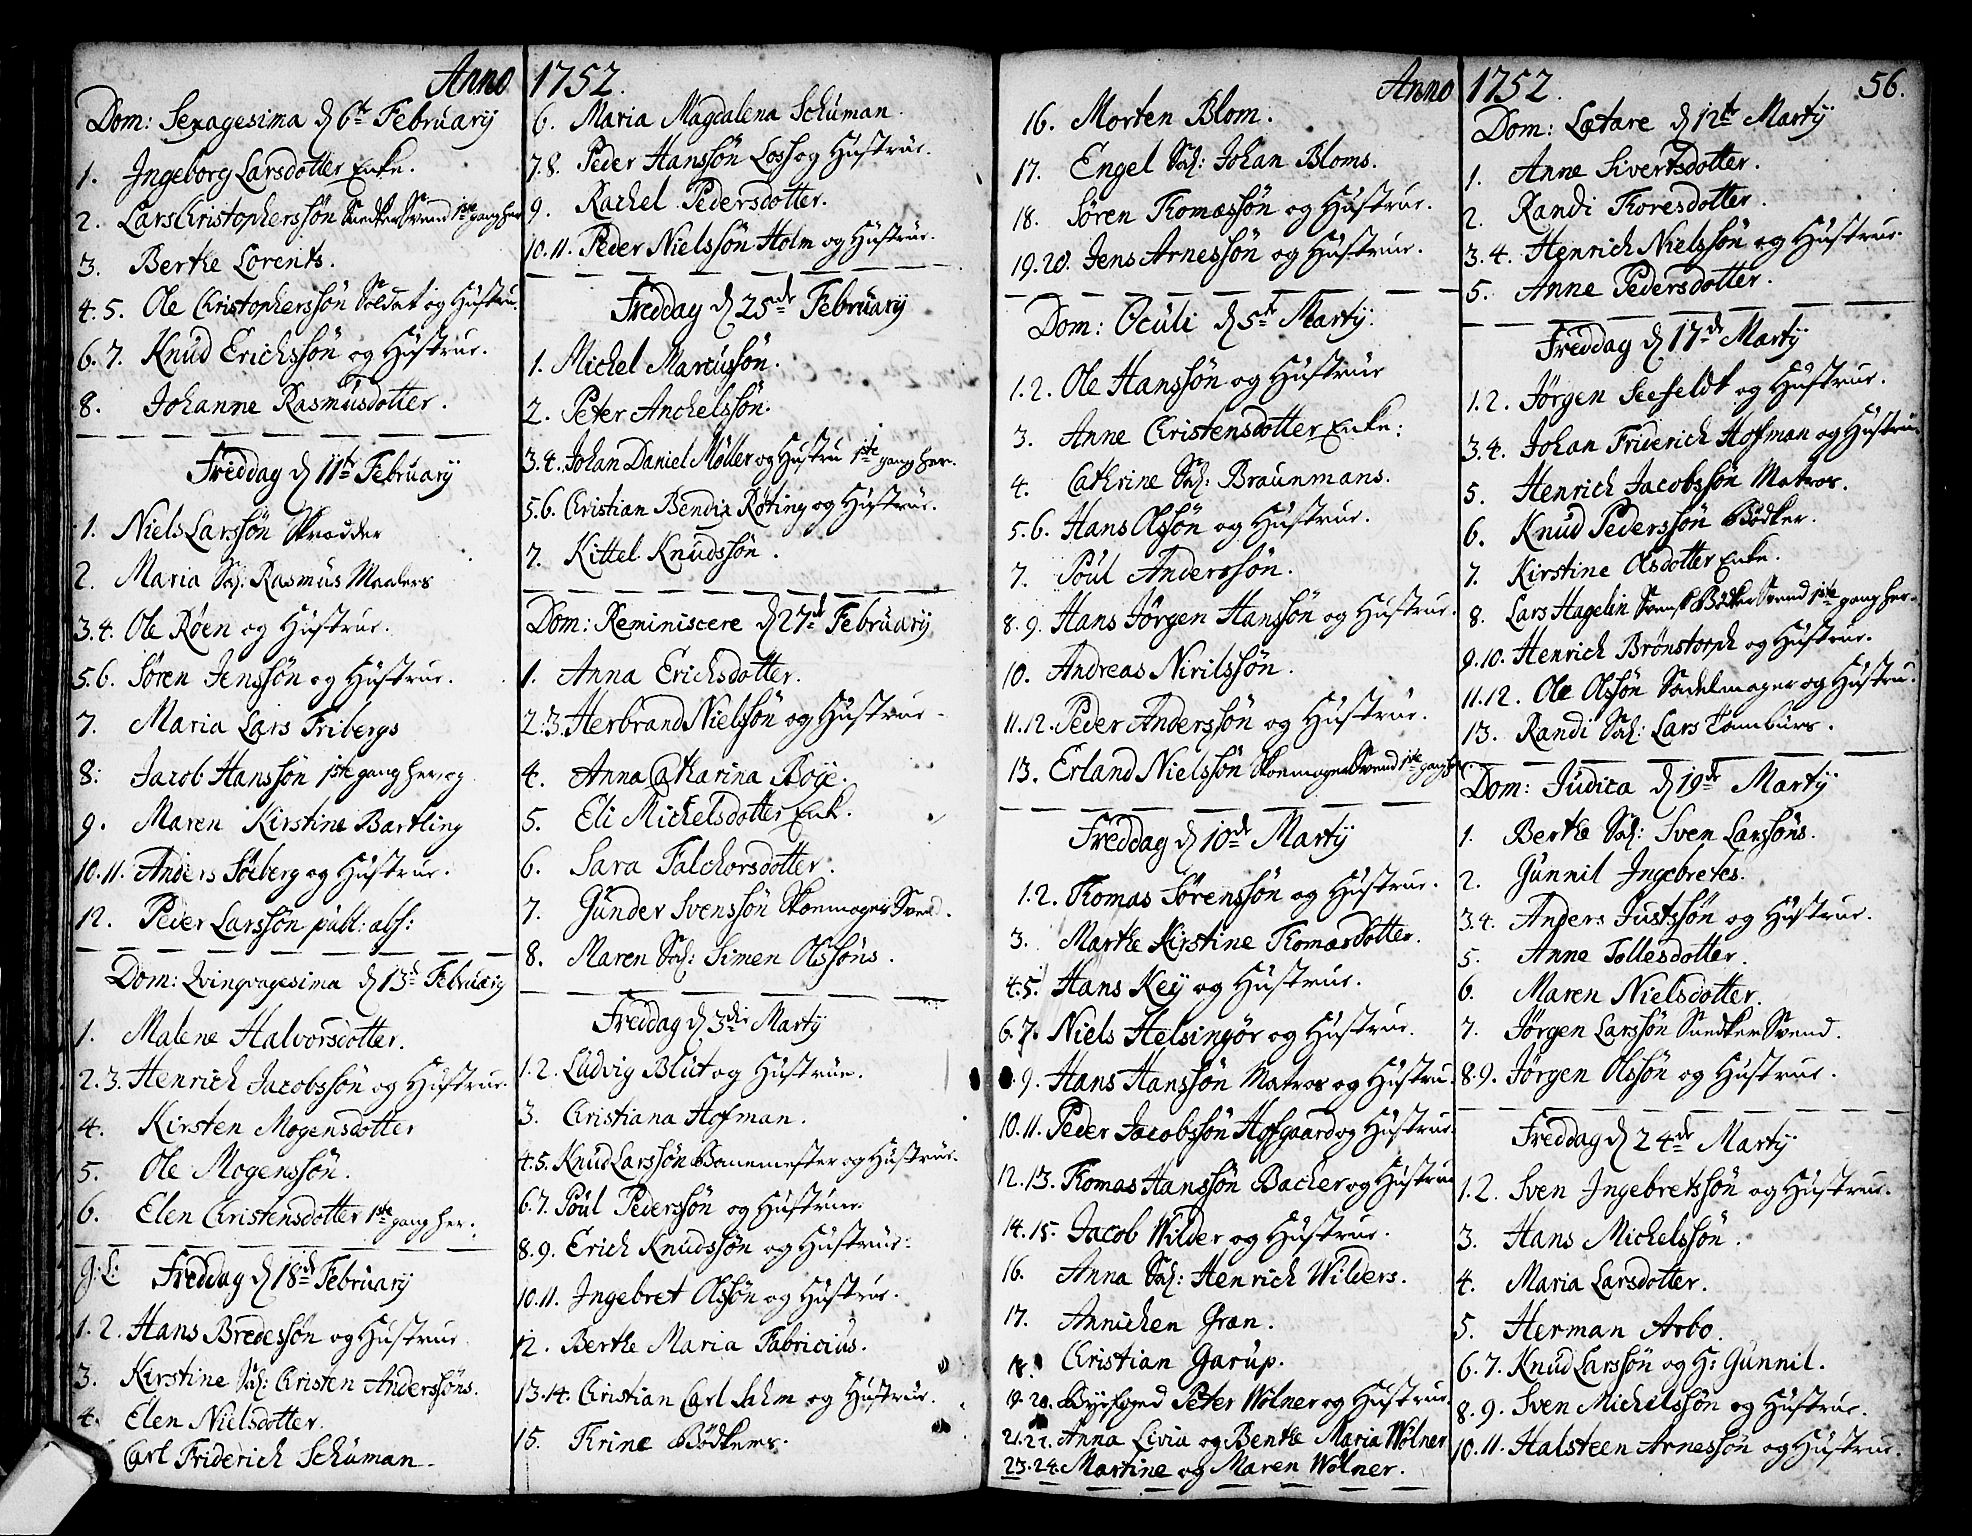 Anno 1752.
Dom: Sexagesima d 6te Februarij
1. Ingeborg Larsdotter Enke.
2. Lars Christopherssön Snedker Svend 1ste gang her
3. Berthe Lorents.
4. 5. Ole Christopherssön Soldat og Hustru.
6. 7. Knud Erichssön og Hustrue.
8. Johanne Rasmusdotter.
Freddag d 11te Februarij
1. Niels Larssön Skrædder
2. Maria Sal: Rasmus Maalers
3. 4. Ole Røen og Hustrue.
5. 6. Sören Jenssön og Hustrue.
7. Maria Lars Fribergs
8. Jacob Hanssön 1ste gang her, og
9. Maren Kirstine Bartling
10. 11. Anders Söeberg og Hustrue.
12. Peder Larssön publ: abs:
Dom: Qvinqvagesima d 13de Februarij
1. Malene Halvorsdotter.
2. 3. Henrich Jacobssön og Hustrue.
4. Kirsten Mogensdotter
5. Ole Mogenssön.
6. Elen Christensdotter 1ste gang her.
Freddag d 18de Februarij
1. 2. Hans Bredessön og Hustrue
3. Kirstine Sal: Christen Anderssöns.
4. Elen Nielsdotter.
Carl Friderich Schuman.
6. Maria Magdalena Schuman.
7. 8. Peder Hanssön Losh og Hustrue.
9. Rachel Pedersdotter.
10. 11. Peder Nielssön Holm og Hustrue.
Freddag d 25de Februarij
1. Michel Marcussön.
2. Peter Anchelssön.
3. 4. Johan Daniel Møller og Hustru 1ste gang her.
5. 6. Christian Bendix Røting og Hustrue.
7. Kittel Knudssön.
Dom: Reminiscere d 27de Februarij
1. Anna Erichsdotter.
2. 3. Herbrand Nielssön og Hustrue.
4. Anna Catharina Boye.
5. Eli Michelsdotter Enk.
6. Sara Falchorsdotter.
7. Gunder Svenssön Skoemager Svend.
8. Maren Sal: Simen Olssöns.
Freddag d 3die Martij
1. 2. Ludvig Blut og Hustrue.
3. Christiana Hofman.
4. 5. Knud Larssön Banemester og Hustrue.
6. 7. Poul Pederssön og Hustrue.
8. 9. Erich Knudssön og Hustrue.
10. 11. Ingebret Olssön og Hustrue.
12. Berthe Maria Fabricius.
13. 14. Christian Carl Sahm og Hustrue.
15. Trine Bödkers.
Anno 1752. 56.
16. Morten Blom.
17. Engel Sal: Johan Bloms.
18. Sören Thomæssön og Hustrue.
19. 20. Jens Arnessön og Hustrue.
Dom: Oculi d 5te Martij.
1. 2. Ole Hanssön og Hustrue
3. Anne Christensdotter Enke.
4. Cathrine Sal: Braunmans.
5. 6. Hans Olssön og Hustrue.
7. Poul Anderssön.
8. 9. Hans Jörgen Hanssön og Hustrue.
10. Andreas Nirilssön.
11. 12. Peder Anderssön og Hustrue.
13. Erland Nielssön Skoemager Svend 1ste gang her.
Freddag d 10de Martij
1. 2. Thomas Sörenssön og Hustrue.
3. Marthe Kirstine Thomasdotter.
4. 5. Hans Key og Hustrue.
6. 7. Niels Helsingör og Hustrue.
9. Hans Hanssön Matros og Hustru.
10. 11. Peder Jacobssön Hofgaard og Hustrue.
12. 13. Thomas Hanssön Bacher og Hustrue
14. 15. Jacob Wilder og Hustrue.
16. Anna Sal: Henrich Wilders.
17. Annichen Græn.
18. Christian Garup.
19. 20. Byefoged Peter Wølner og Hustrue.
21. 22. Anna Livia og Benthe Maria Wølner
23. 24. Martine og Maren Wølner.
Dom: Lætare d 12te Martij
1. Anne Sivertsdotter.
2. Randi Thoresdotter.
3. 4. Henrich Nielssön og Hustrue.
5. Anne Pedersdotter.
Freddag d 17de Martij
1. 2. Jörgen Seefeldt og Hustrue.
3. 4. Johan Friderich Hofman og Hustrue
5. Henrich Jacobssön Matros.
6. Knud Pederssön Bödker.
7. Kirstine Olsdotter Enke.
8. Lars Hagelin Svensk Bödker Svend 1ste gang her.
9. 10. Henrich Brönstorph og Hustrue.
11. 12. Ole Olssön Sadelmager og Hustru.
13. Randi Sal: Lars Tombürs.
Dom: Judica d 19de Martij
1. Berthe Sal: Sven Larssöns.
2. Gunnil Ingebretes.
3. 4. Anders Justssön og Hustrue.
5. Anne Tollesdotter.
6. Maren Nielsdotter.
7. Jörgen Larssön Snedker Svend.
8. 9. Jörgen Olssön og Hustrue.
Freddag d 24de Martij
1. 2. Sven Ingebretssön og Hustrue.
3. Hans Michelssön.
4. Maria Larsdotter.
5. Herman Arbo.
6. 7. Knud Larssön og H: Gunnil.
8. 9. Sven Michelssön og Hustrue.
10. 11. Halsteen Arnessön og Hustrue.